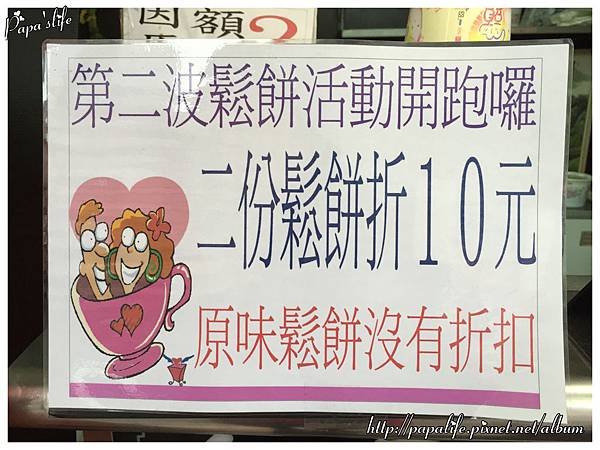 Papa'slife
額
第二波鬆餅活動開跑囉
二份鬆餅折10元
原味鬆餅沒有折扣
http://papalife.pixnet.net/album